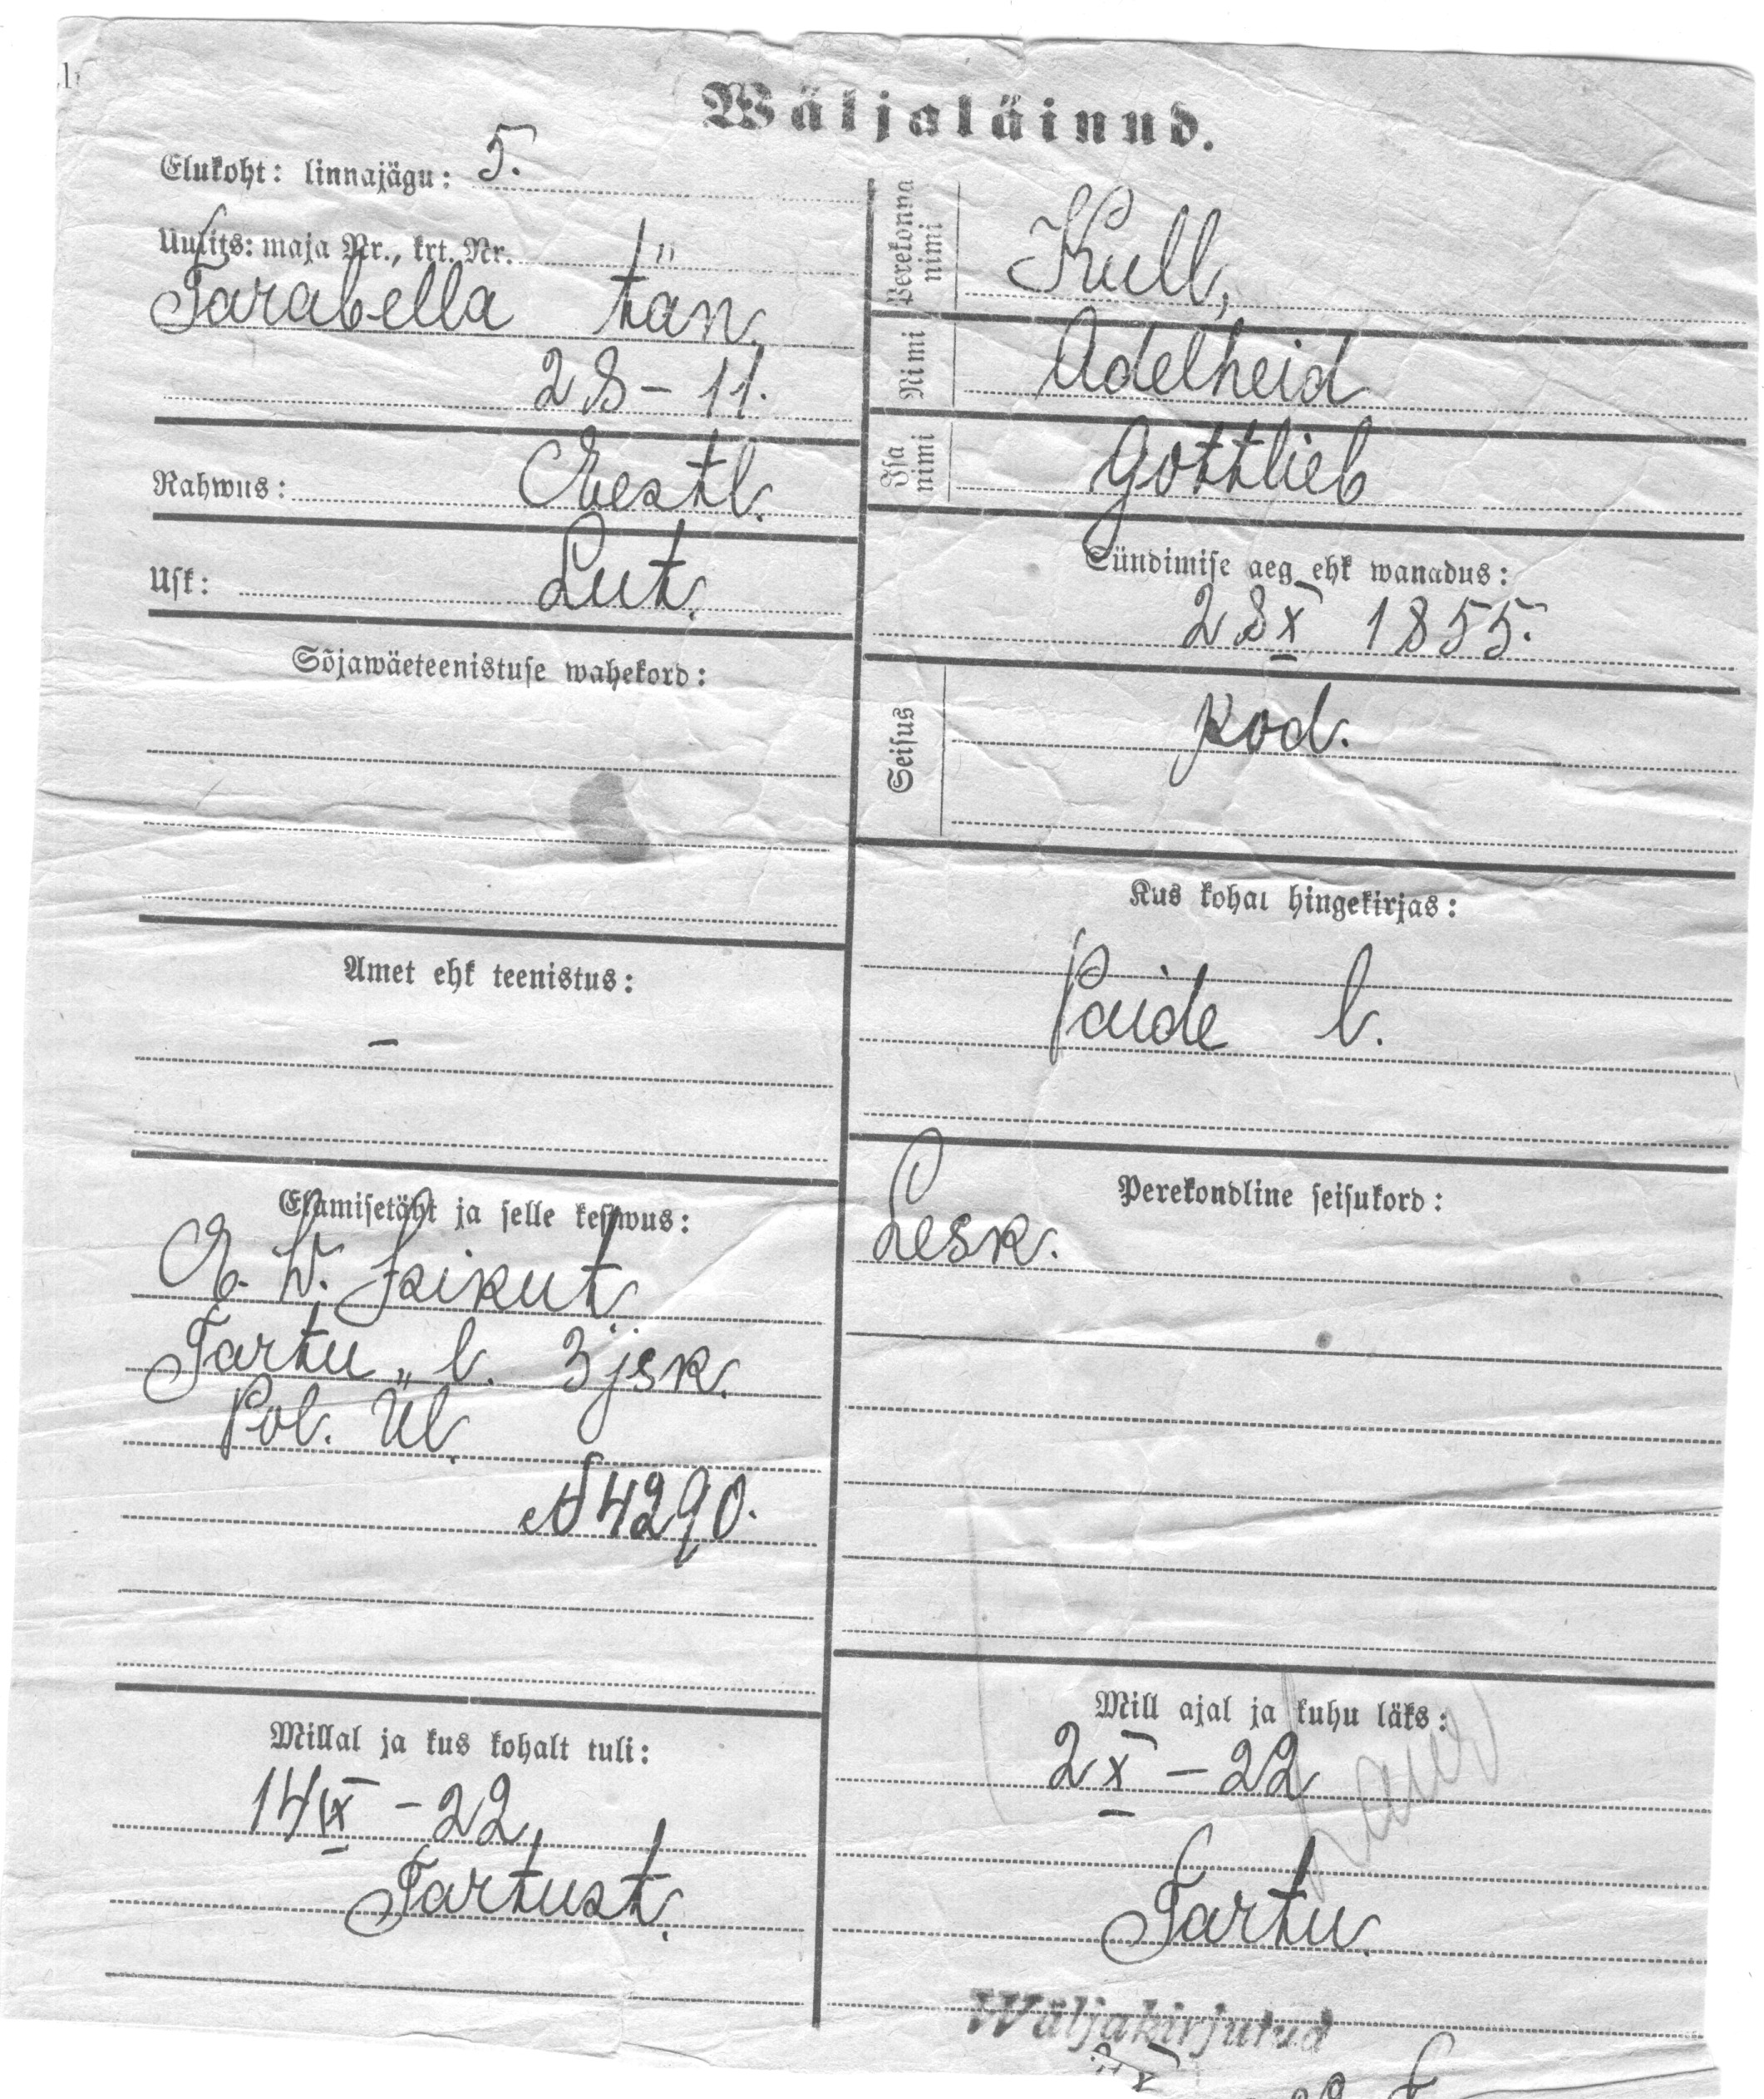 Wäljaläinud.
Elukoht: linnajägu: 5.
Uulits: maja Nr., krt. Nr.
Tarabella tän.
28 – 11.
Rahwus: Eestl.
Usk: Lut.
Sõjawäeteenistuse wahekord:
Amet ehk teenistus:
–
Elamisetäht ja selle kestwus:
E. W. Isikut.
Tartu l. 3 jsk.
Pol. Ül.
№ 4290.
Millal ja kus kohalt tuli:
14 IX – 22
Tartust.
Perekonna nimi Kull,
Nimi Adelheid
Isa nimi Gottlieb
Sündimise aeg ehk wanadus:
28 X 1855.
Seisus kod.
Kus kohal hingekirjas:
Paide l.
Perekondline seisukord:
Lesk.
Mill ajal ja kuhu läks:
2 X – 22
Tartu.
Wäljakirjutud